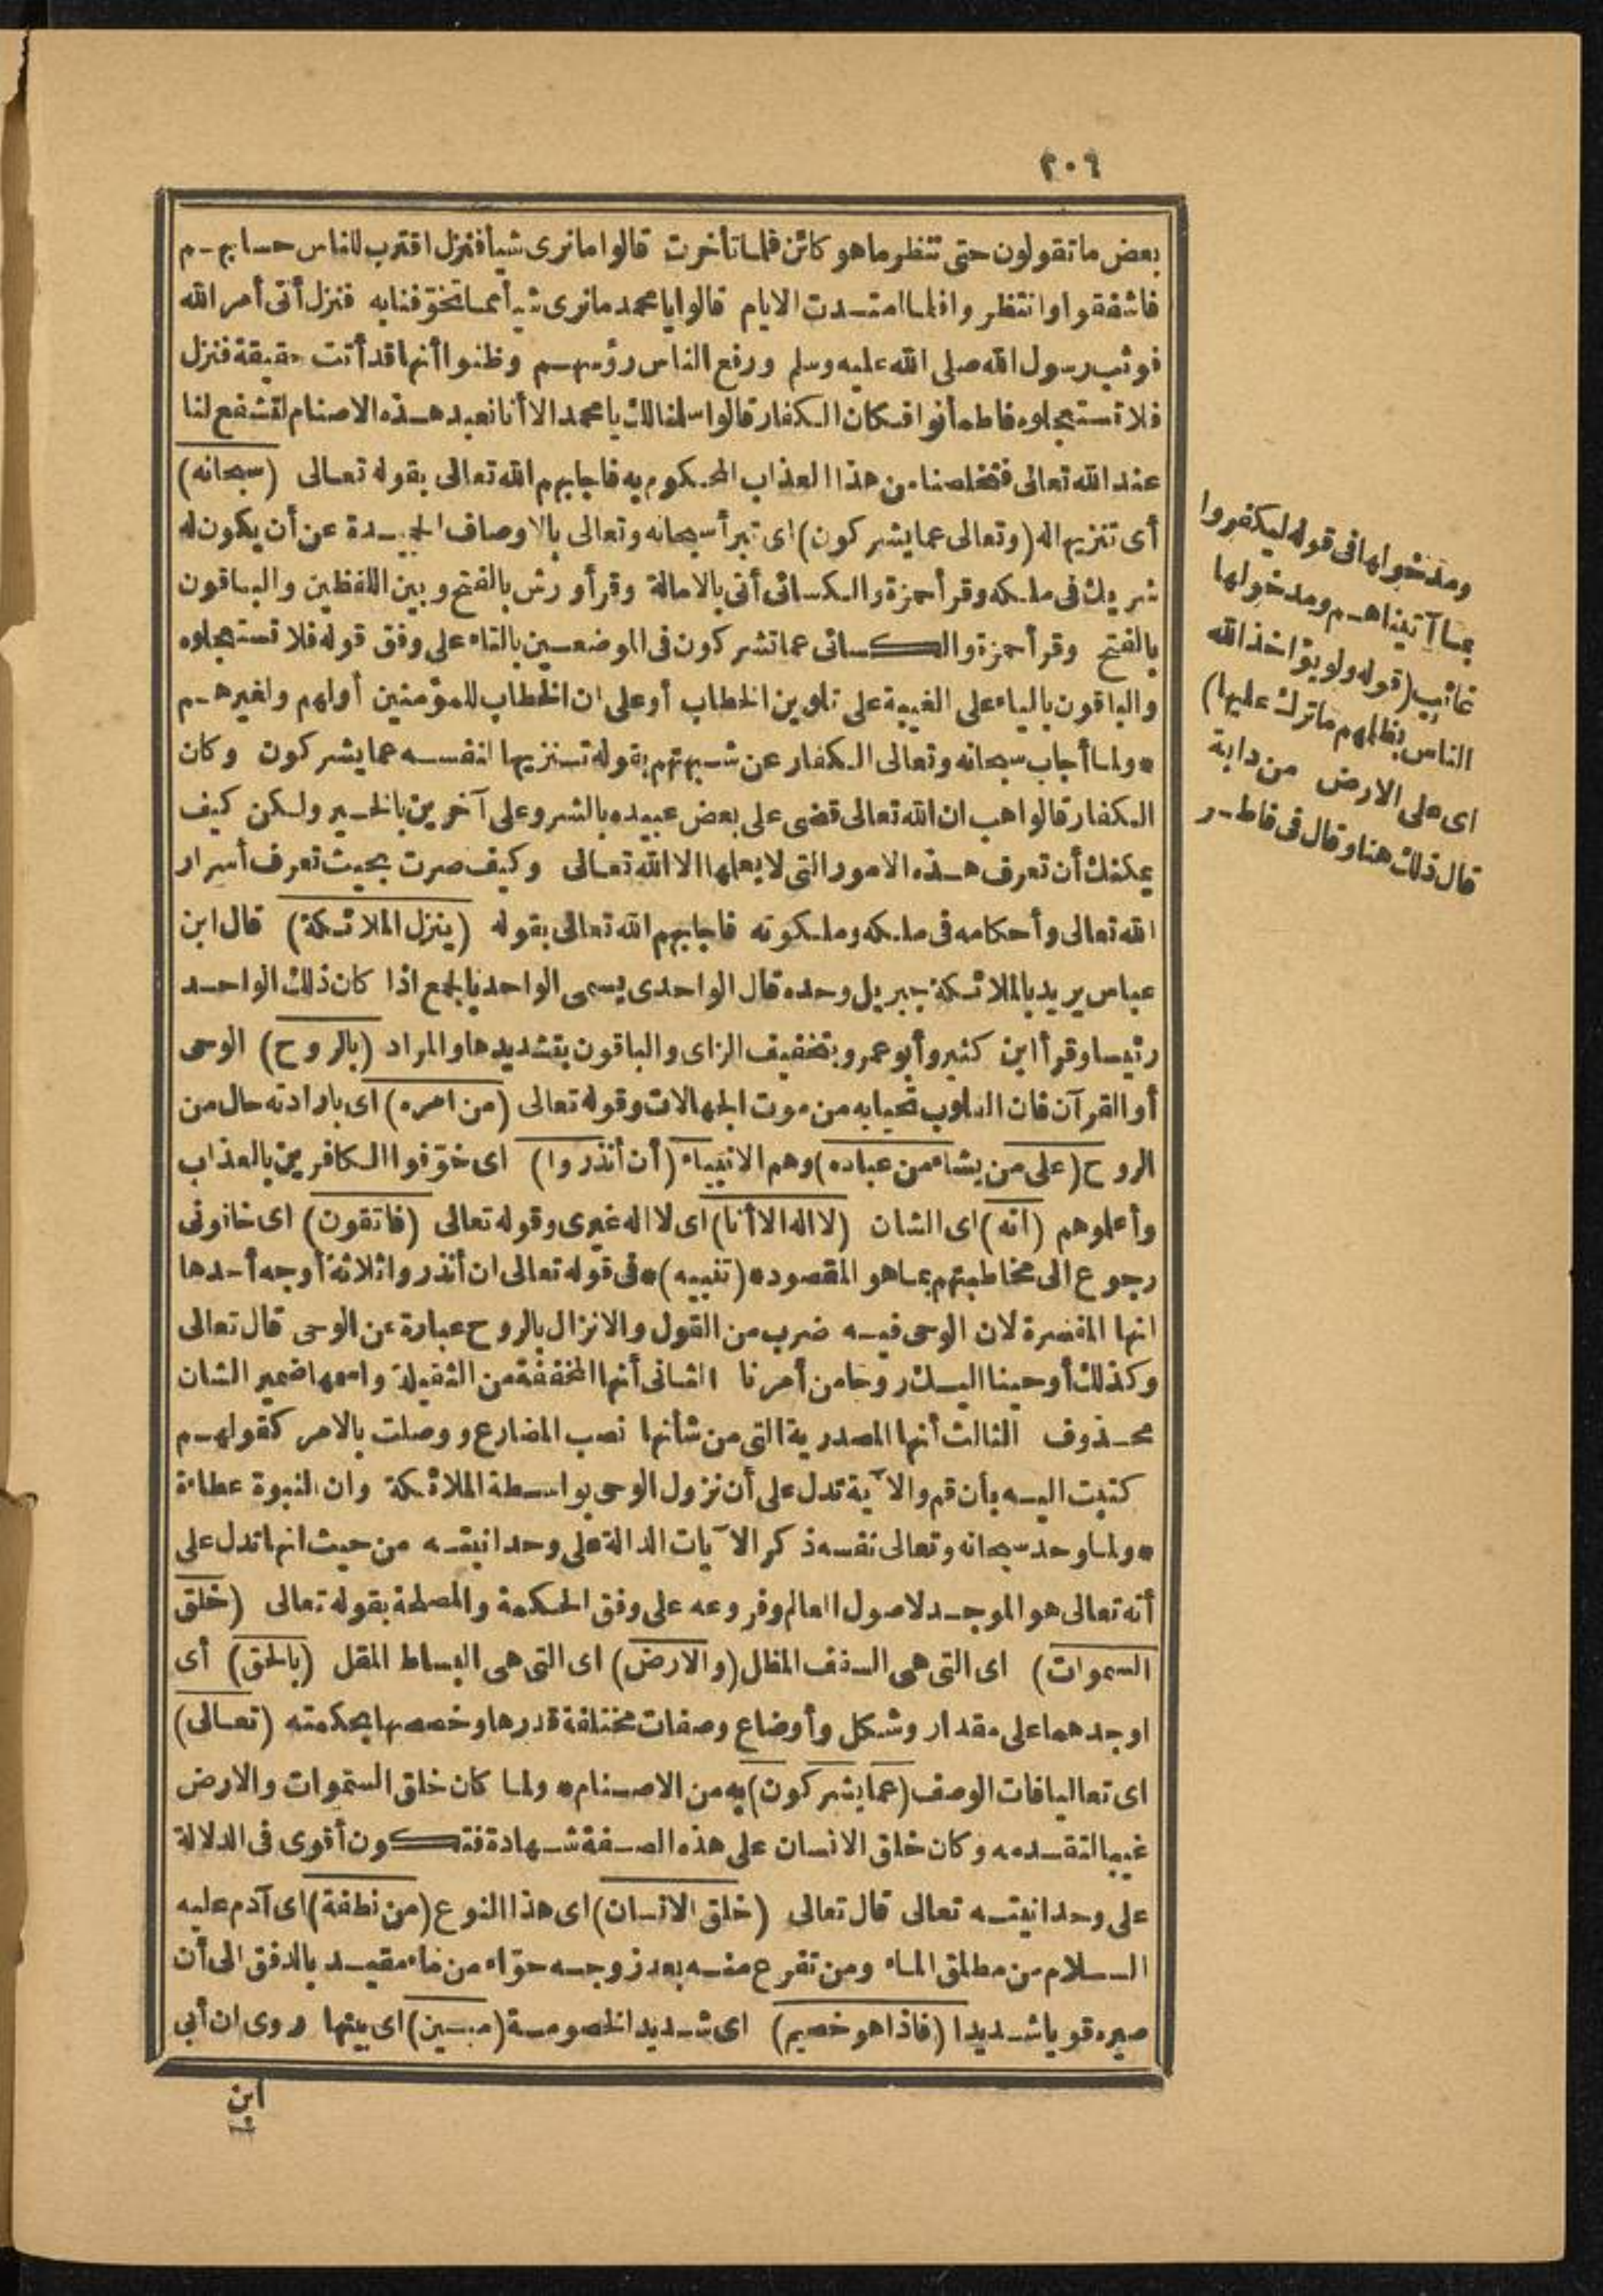 ٢٠٦
بعض ما تقولون حتى تنظر ما هو كائن فلما تأخرت قالوا ما نرى شيأ فنزل اقترب للناس حسابهم
فاشفقوا وانتظروا فلما امتدت الايام قالوا يا محمد ما نرى شيأ مما تخوّفنا به فنزل أتى أمر الله
فوثب رسول الله صلى الله عليه وسلم ورفع الناس رؤسهم وظنوا أنها قد أتت حقيقة فنزل
فلا تستعجلوه فاطمأنوا فكان الكفار قالوا سلمنا لك يا محمد الا أنا نعبد هذه الاصنام لتشفع لنا
عند الله تعالى فتخلصنا من هذا العذاب المحكوم به فاجابهم الله تعالى بقوله تعالى (سبحانه)
أى تنزيها له (وتعالى عما يشركون) اى تبرأ سبحانه وتعالى بالاوصاف الحميدة عن أن يكون له
شريك فى ملكه وقرأ حمزة والكسائى أتى بالامالة وقرأ ورش بالفتح وبين اللفظين والباقون
بالفتح وقرأ حمزة والكسائى عما تشركون فى الموضعين بالتاء على وفق قوله فلا تستعجلوه
والباقون بالياء على الغيبة على تلوين الخطاب أو على ان الخطاب للمؤمنين أو لهم ولغيرهم
* ولما أجاب سبحانه وتعالى الكفار عن شبهتهم بقوله تنزيها لنفسه عما يشركون وكان
الكفار قالوا هب ان الله تعالى قضى على بعض عبيده بالشر وعلى آخرين بالخير ولكن كيف
يمكنك أن تعرف هذه الامور التى لا يعلمها الا الله تعالى وكيف صرت بحيث تعرف أسرار
الله تعالى وأحكامه فى ملكه وملكوته فاجابهم الله تعالى بقوله (ينزل الملائكة) قال ابن
عباس يريد بالملائكة جبريل وحده قال الواحدى يسمى الواحد بالجمع اذا كان ذلك الواحد
رئيسا وقرأ ابن كثير وأبو عمرو بتخفيف الزاى والباقون بتشديدها والمراد (بالروح) الوحى
أو القرآن فان القلوب تحيا به من موت الجهالات وقوله تعالى (من امره) اى بارادته حال من
الروح (على من يشاء من عباده) وهم الانبياء (أن أنذروا) اى خوّفوا الكافرين بالعذاب
وأعلموهم (انه) اى الشان (لا اله الا أنا) اى لا اله غيرى وقوله تعالى (فاتقون) اى خافونى
رجوع الى مخاطبتهم بما هو المقصود * (تنبيه) * فى قوله تعالى ان أنذروا ثلاثة أوجه أحدها
انها المفسرة لان الوحى فيه ضرب من القول والانزال بالروح عبارة عن الوحى قال تعالى
وكذلك أوحينا اليك روحا من أمرنا الثانى أنها المخففة من الثقيلة واسمها ضمير الشان
محذوف الثالث أنها المصدرية التى من شأنها نصب المضارع ووصلت بالامر كقولهم
كتبت اليه بأن قم والآية تدل على أن نزول الوحى بواسطة الملائكة وان النبوة عطاءة
* ولما وحد سبحانه وتعالى نفسه ذكر الآيات الدالة على وحدانيته من حيث انها تدل على
أنه تعالى هو الموجد لاصول العالم وفروعه على وفق الحكمة والمصلحة بقوله تعالى (خلق
السموات) اى التى هى السقف المظل (والارض) اى التى هى البساط المقل (بالحق) أى
اوجدهما على مقدار وشكل وأوضاع وصفات مختلفة قدرها وخصصها بحكمته (تعالى)
اى تعاليا فات الوصف (عما يشركون) به من الاصنام * ولما كان خلق السموات والارض
غيبا لتقدمه وكان خلق الانسان على هذه الصفة شهادة فتكون أقوى فى الدلالة
على وحدانيته تعالى قال تعالى (خلق الانسان) اى هذا النوع (من نطفة) اى آدم عليه
السلام من مطلق الماء ومن تفرع منه بعد زوجه حوّاء من ماء مقيد بالدفق الى أن
صيره قويا شديدا (فاذا هو خصيم) اى شديد الخصومة (مبين) اى بينها روى ان أبى
ابن
ومدخولها فى قوله ليكفروا
بما آتيناهم ومدخولها
غائب (قوله ولو يؤاخذ الله
الناس بظلمهم ما ترك عليها)
اى على الارض من دابة
قال ذلك هنا وقال فى فاطر